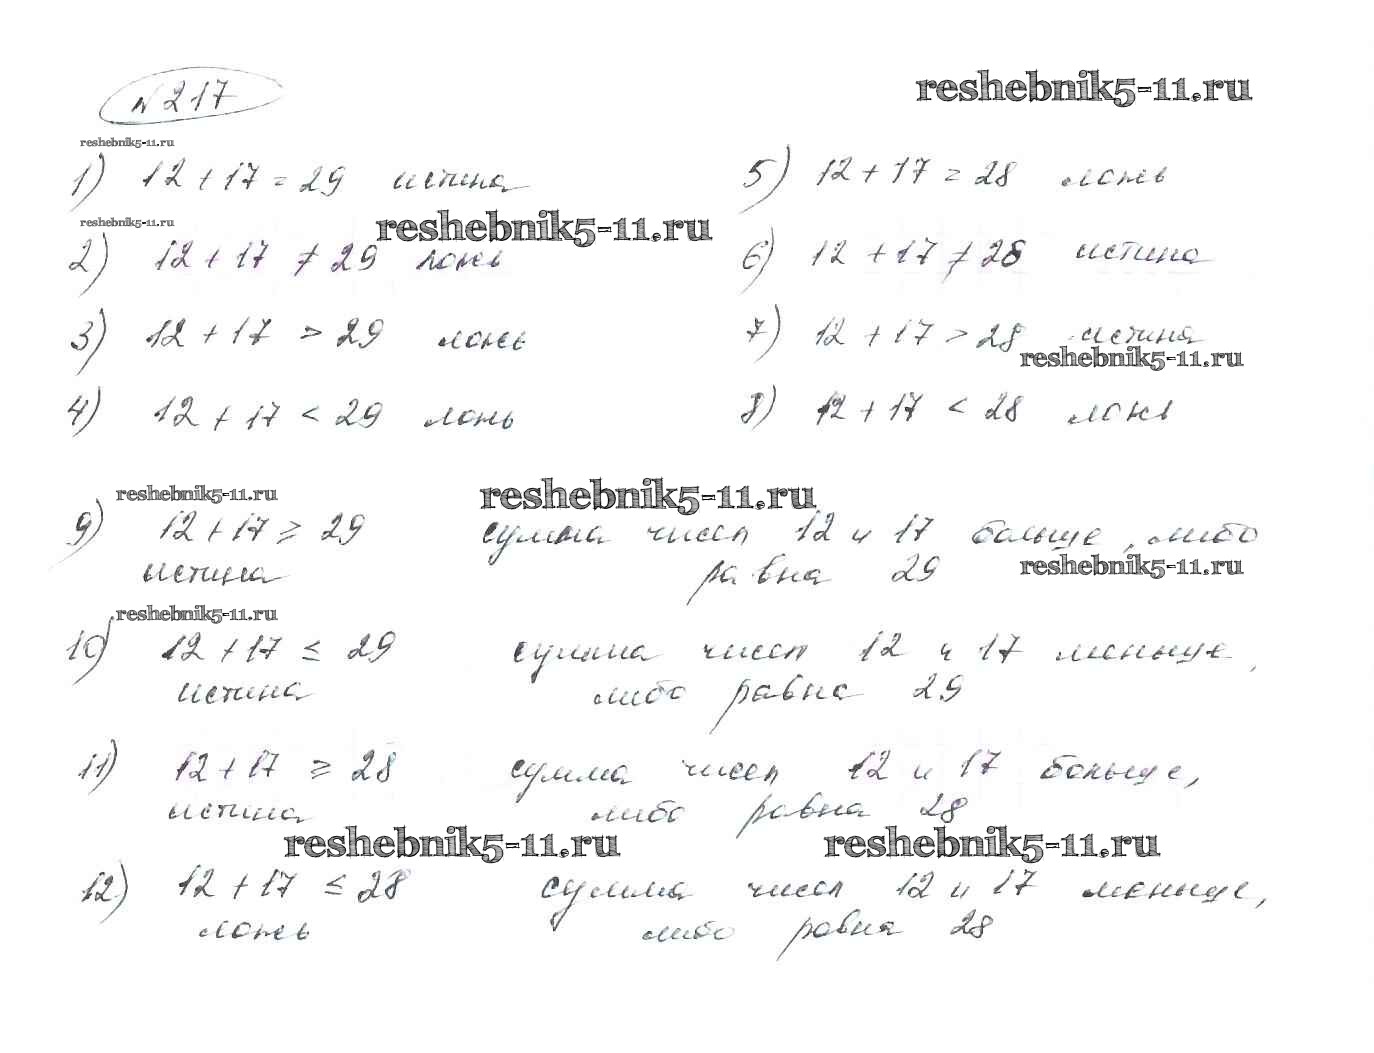 №217
reshebnik5-11.ru
reshebnik5-11.ru
1) 12 + 17 = 29 истина
5) 12 + 17 = 28 ложь
reshebnik5-11.ru
reshebnik5-11.ru
2) 12 + 17 ≠ 29 ложь
6) 12 + 17 ≠ 28 истина
3) 12 + 17 > 29 ложь
7) 12 + 17 > 28 истина
reshebnik5-11.ru
4) 12 + 17 < 29 ложь
8) 12 + 17 < 28 ложь
reshebnik5-11.ru
reshebnik5-11.ru
9) 12 + 17 ≥ 29 сумма чисел 12 и 17 больше, либо
истина равна 29
reshebnik5-11.ru
reshebnik5-11.ru
10) 12 + 17 ≤ 29 сумма чисел 12 и 17 меньше,
истина либо равна 29
11) 12 + 17 ≥ 28 сумма чисел 12 и 17 больше,
истина либо равна 28
reshebnik5-11.ru
reshebnik5-11.ru
12) 12 + 17 ≤ 28 сумма чисел 12 и 17 меньше,
ложь либо равна 28